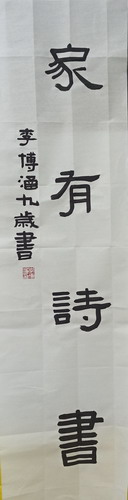 家有詩書
李博涵九歲書